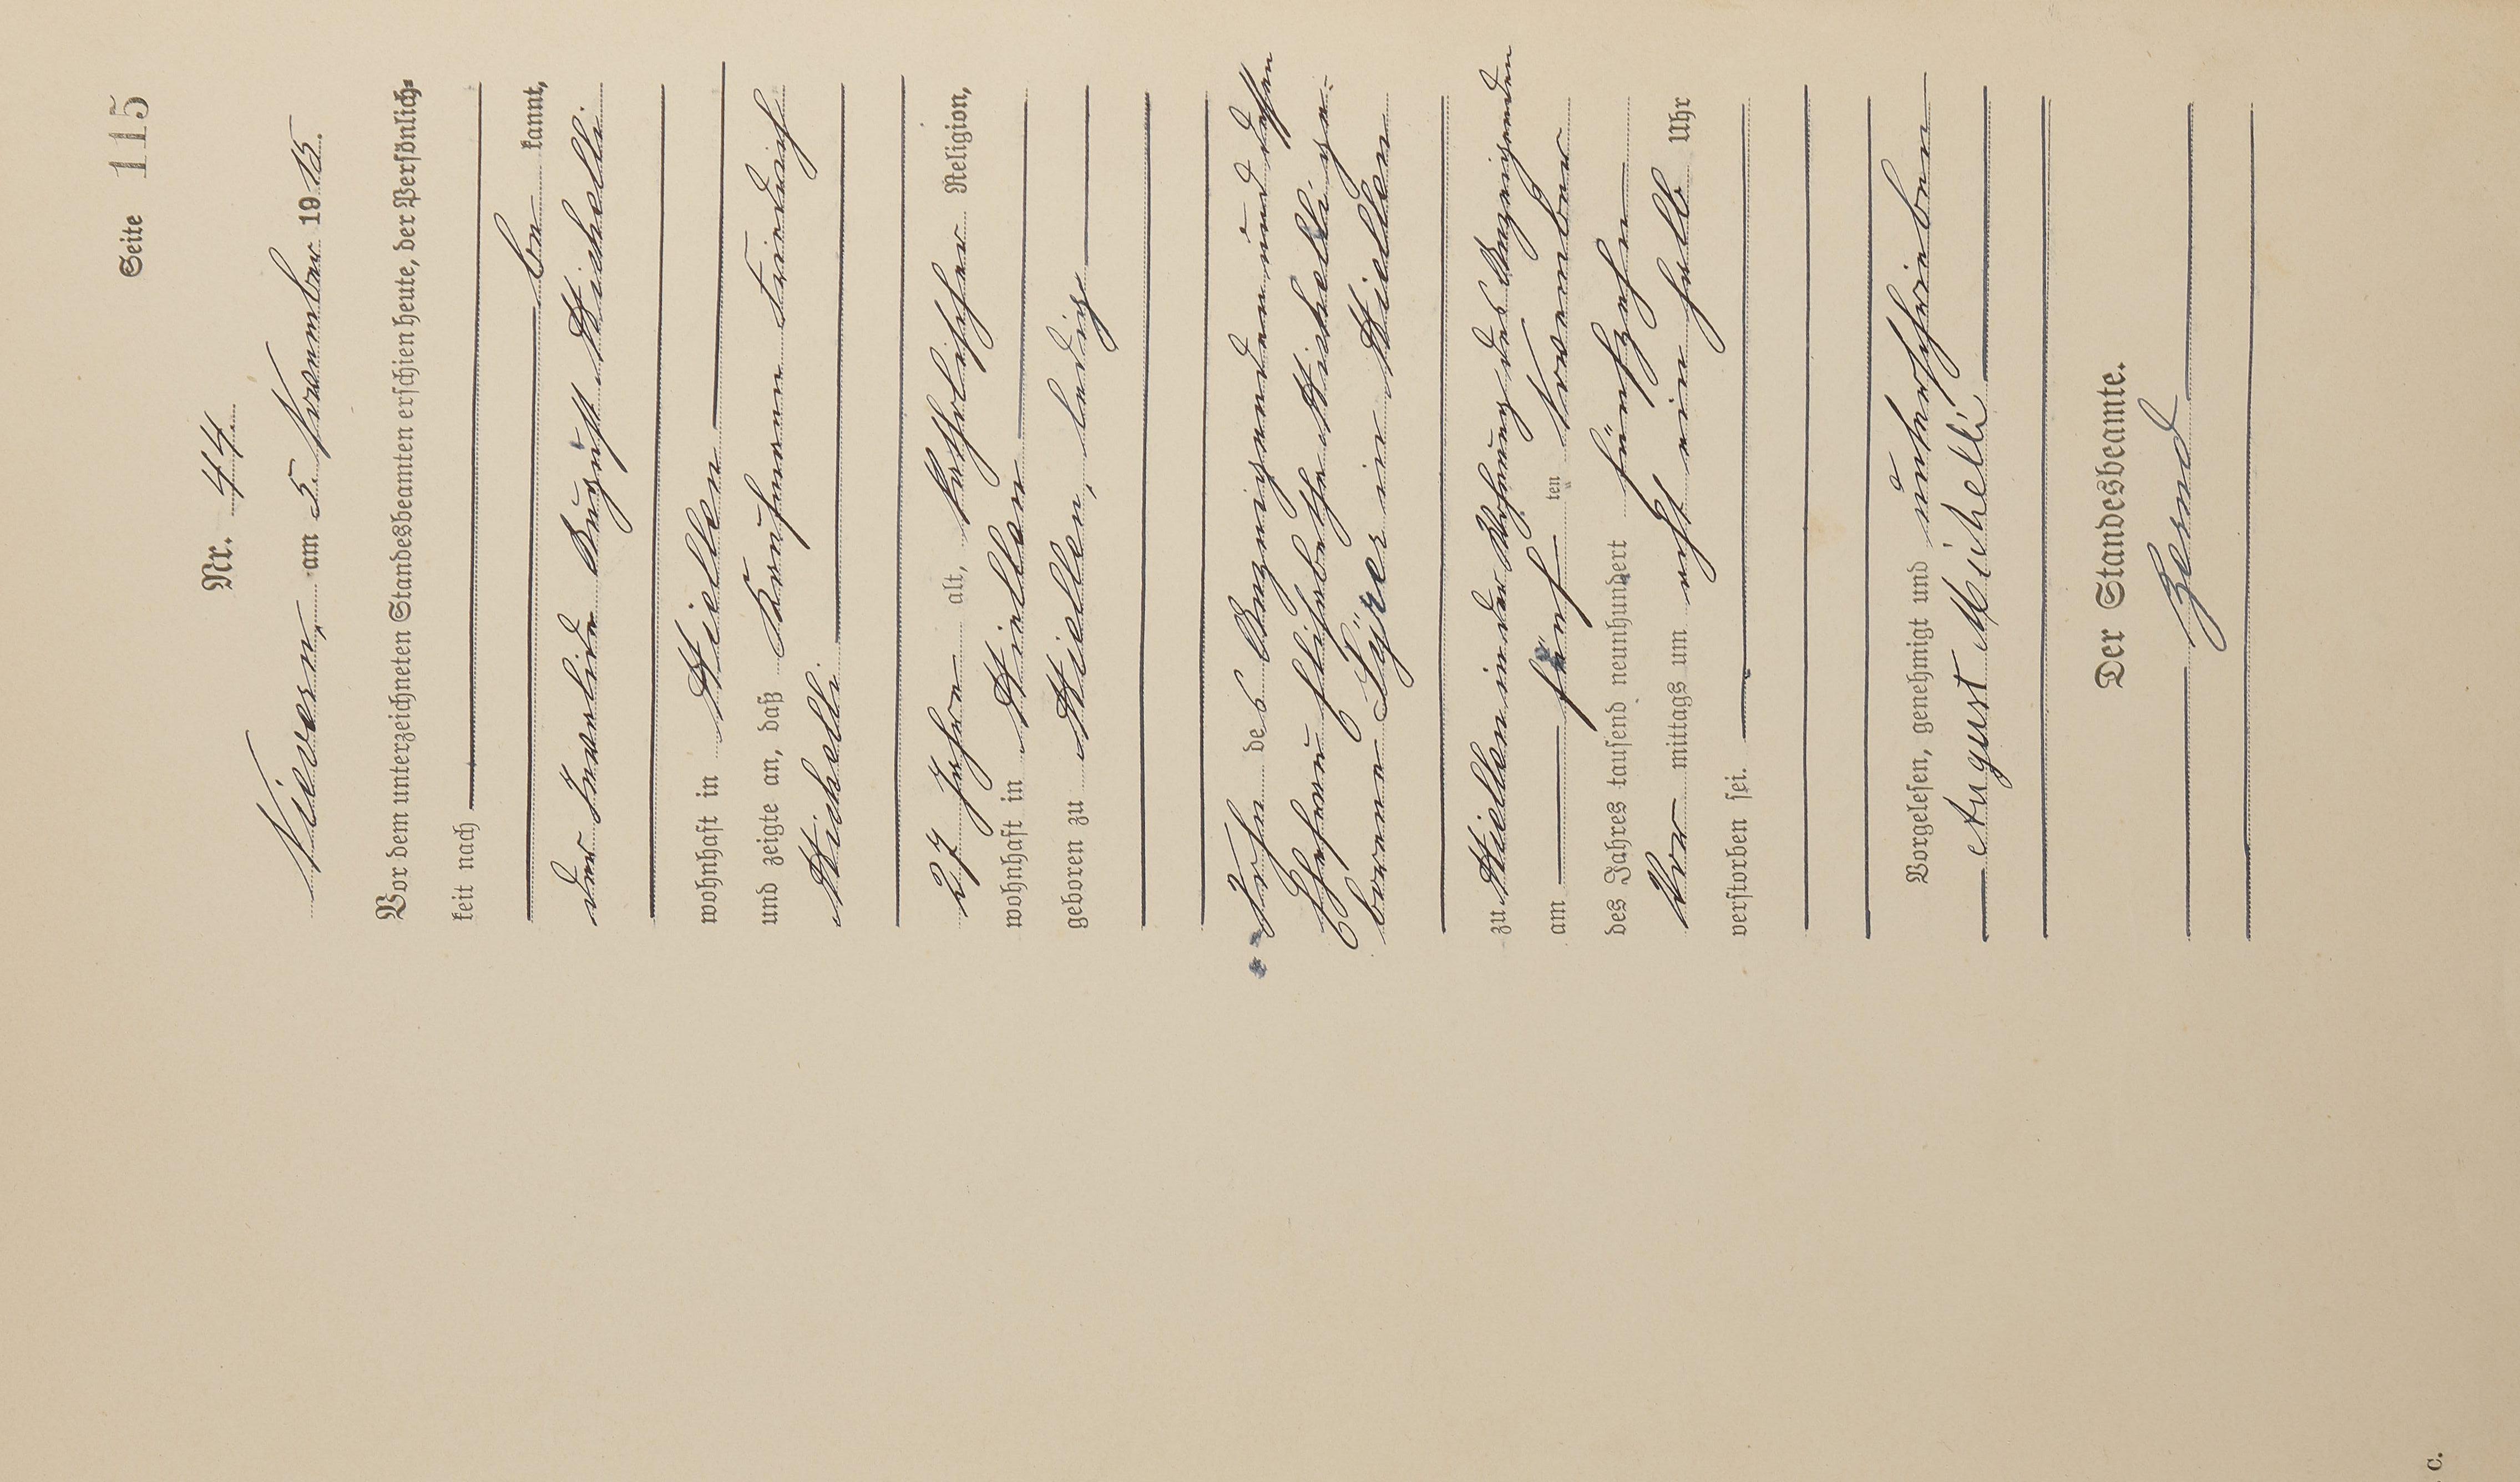 Seite 115
Nr. 44.
Nievern, am 5 November 1915.
Vor dem unterzeichneten Standesbeamten erschien heute, der Persönlich-
keit nach
be kannt,
der Invalide August Michelli.
wohnhaft in Miellen
und zeigte an, daß Kaufmann Friedrich
Michelli.
27 Jahre alt, katholischer Religion,
wohnhaft in Miellen
geboren zu Miellen, ledig
Sohn des Anzeigenden und dessen
Ehefrau Elisabetha Michelli ge-
borene in Miellen
zu Miellen in der Wohnung des Anzeigenden
am fünf ten November
des Jahres tausend neunhundert fünfzehn
Vor mittags um acht ein halb Uhr
verstorben sei.
Vorgelesen, genehmigt und unterschrieben
August Michelli
Der Standesbeamte.
C.